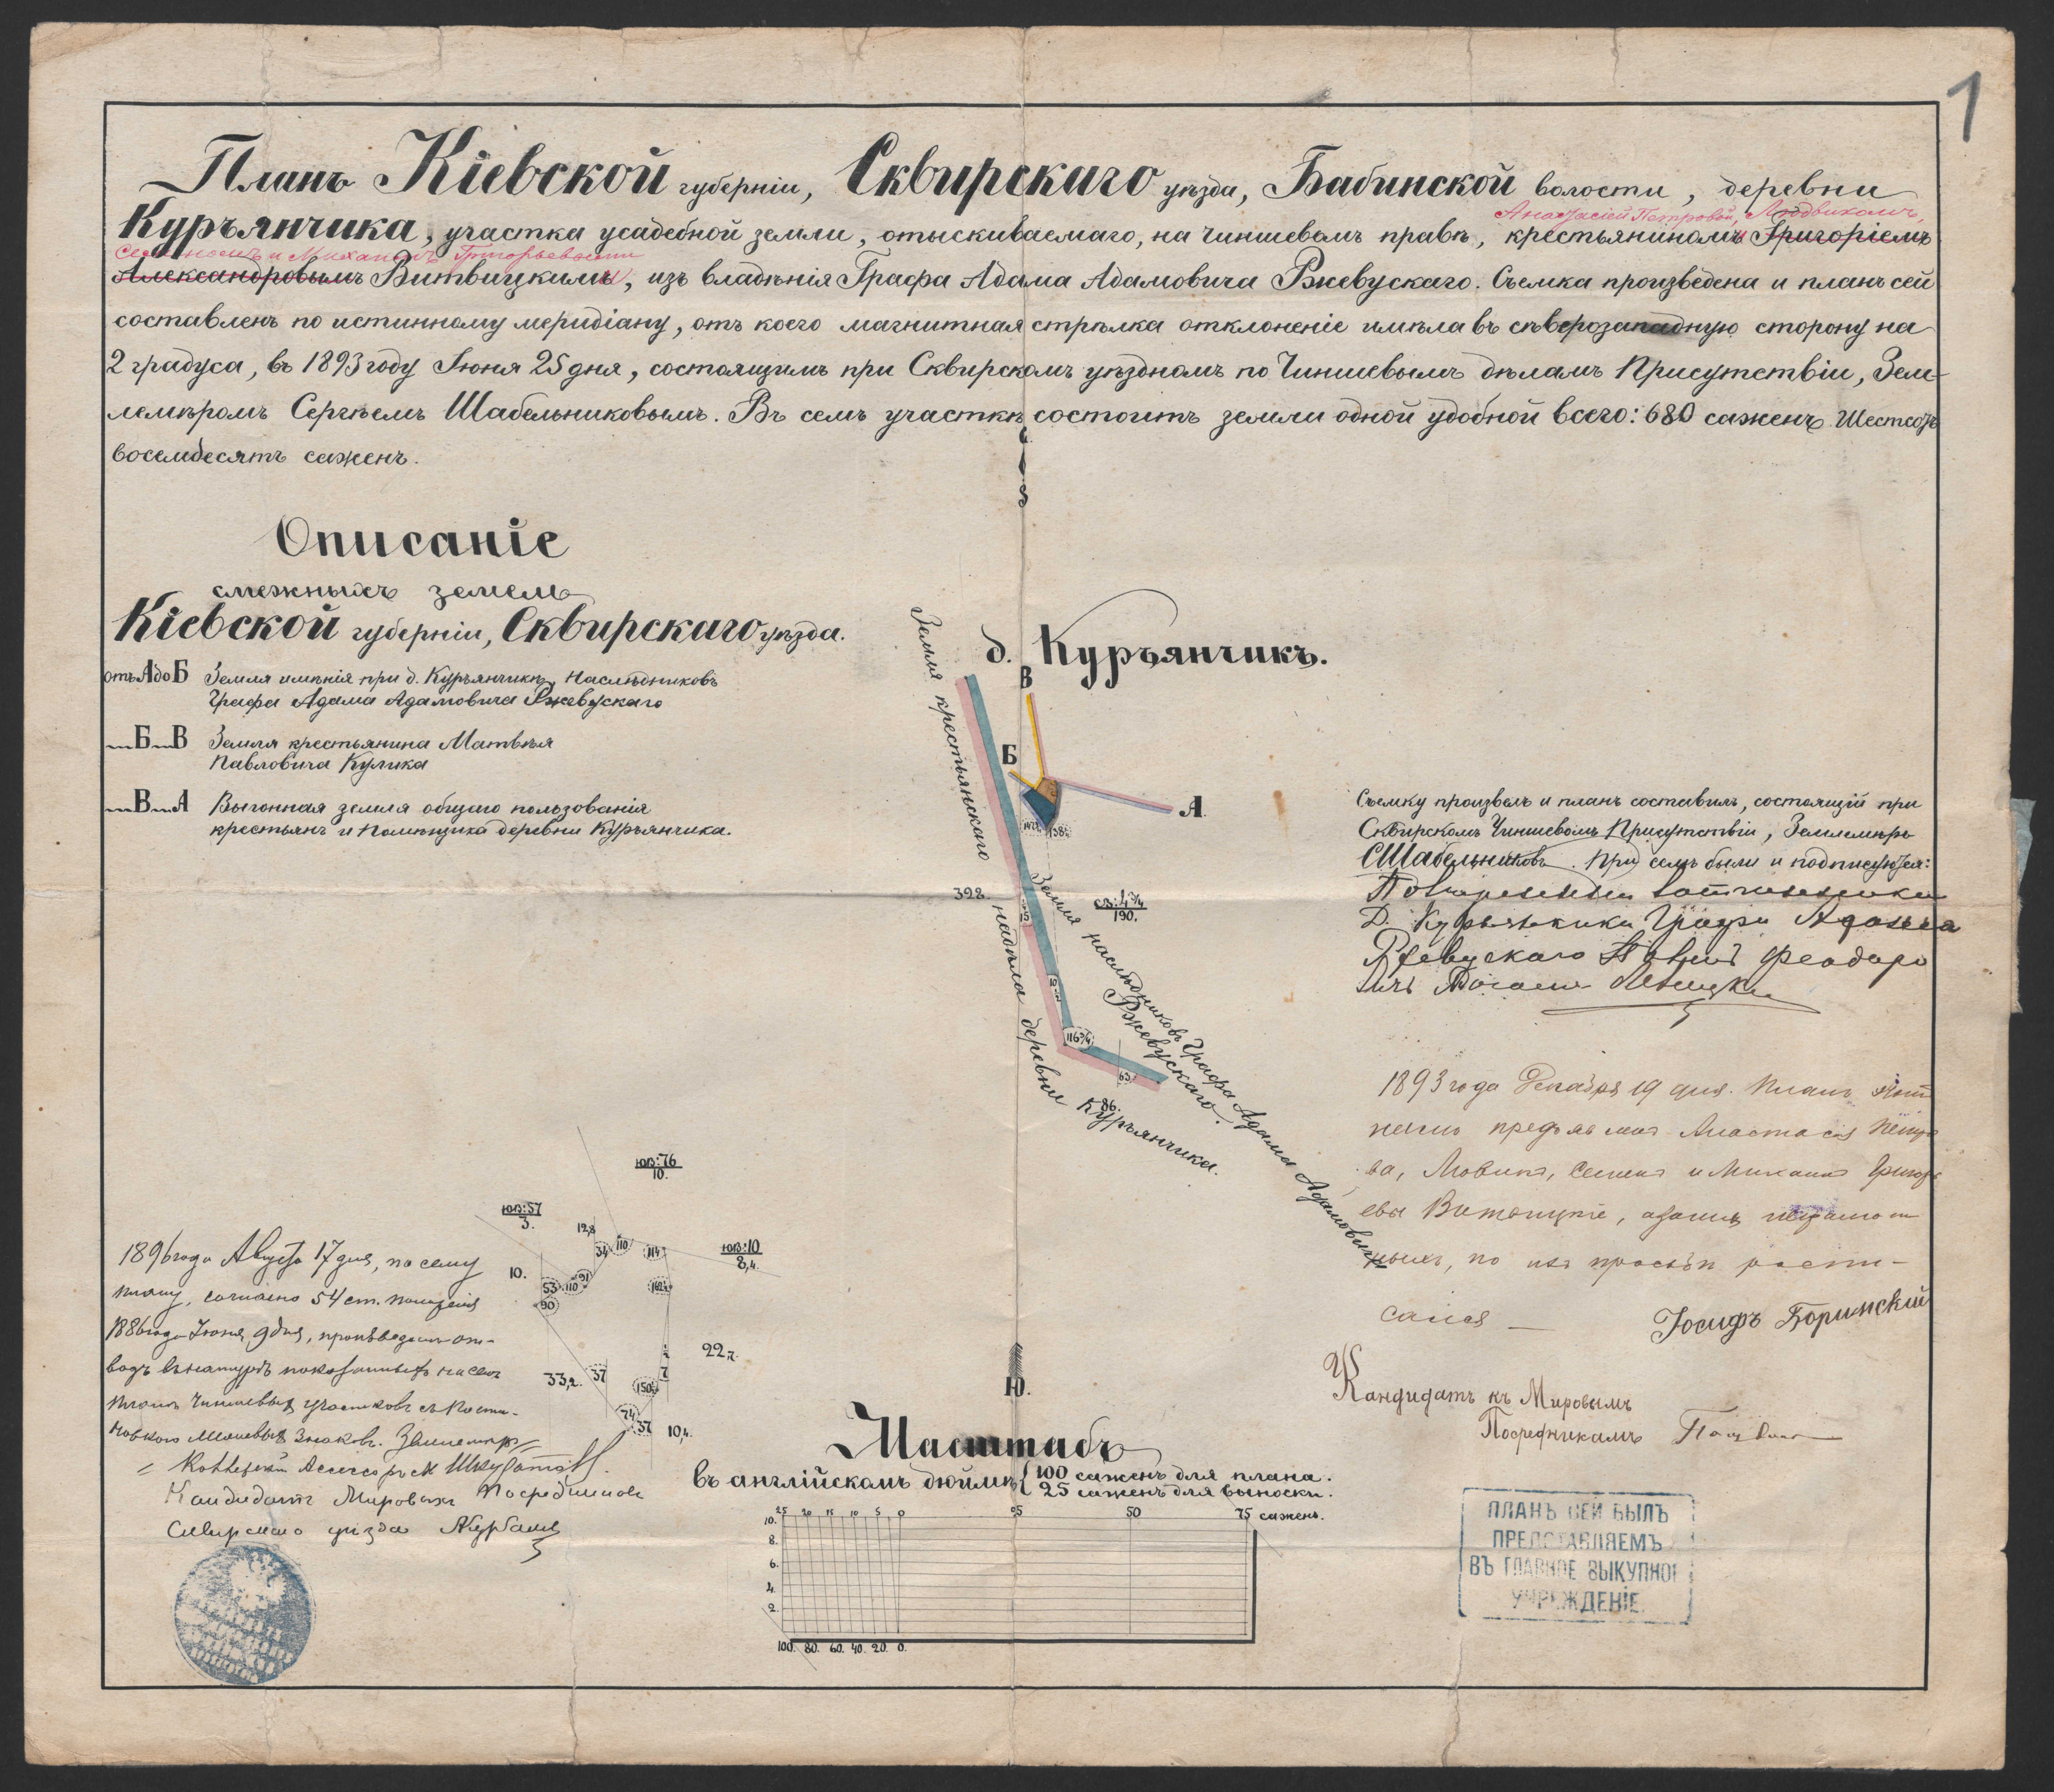 1
Планъ Кіевской губерніи, Сквирскаго уѣзда, Бабинской волости, деревни
Анастасіей Петровой, Людвикомъ,
Куръянчика, участка усадебной земли, отыскиваемаго, на чиншевомъ правѣ, крестьяниномъ Григоріемъ
Семеномъ и Михаиломъ Григорьевыми
Александровымъ Витвицкимъ, изъ владѣнія Графа Адама Адамовича Ржевускаго. Съемка произведена и планъ сей
составленъ по истинному меридіану, отъ коего магнитная стрѣлка отклоненіе имѣла въ сѣверозападную сторону на
2 градуса, въ 1893 году Іюня 25 дня, состоящимъ при Сквирскомъ уѣздномъ по Чиншевымъ дѣламъ Присутствіи, Зем-
лемѣромъ Сергѣемъ Шабельниковымъ. Въ семъ участкѣ состоитъ земли одной удобной всего: 680 саженъ Шестсотъ
восемдесятъ саженъ.
Описаніе
смежныхъ земель
Кіевской губерніи, Сквирскаго уѣзда.
отъ А до Б Земля имѣнія при д. Курьянчикѣ, Наслѣдниковъ
Графа Адама Адамовича Ржевускаго
Б В Земля крестьянина Матвѣя
Павловича Кулика
В А Выгонная земля общаго пользованія
крестьянъ и помѣщика деревни Курьянчика.
д. Куръянчикъ.
В
Б
А.
Земля крестьянскаго надѣла деревни Куръянчика.
Земля наслѣдниковъ Графа Адама Адамовича
Ржевускаго.
398.
СЗ: 4¾
190.
15
116¾
63
86.
Съемку произвелъ и планъ составилъ, состоящій при
Сквирскомъ Чиншевомъ Присутствіи, Землемѣръ
СШабельниковъ. При семъ были и подписуются:
Д. Курьянчика Графа Адама
Ржевускаго
1893 года Декабря 19 дня. Планъ
предъявленъ Анастасія
Семенъ и Михаилъ
по ихъ просьбѣ
Іосифъ Боримскій
Кандидатъ къ Мировымъ
Посредникамъ
ЮВ: 76
10.
ЮВ: 57
3.
12,8
34
110
114
ЮВ: 10
8,4.
10.
53
110
91
90
22,7.
33,2.
37
7
74
37
10,4.
1896 года Августа 17 дня, по сему
плану, согласно 54 ст. положенія
1886 года Іюня 9 дня, произведенъ от-
водъ въ натурѣ показанныхъ на семъ
планѣ Чиншевыхъ участковъ съ поста-
новкою межевыхъ знаковъ. Землемѣръ
Кандидатъ Мировыхъ Посредниковъ
Сквирскаго уѣзда
Ю.
Масштабъ
въ англійскомъ дюймѣ { 100 саженъ для плана.
25 саженъ для выноски.
25 20 15 10 5 0 25 50 75 сажень.
10.
8.
6.
4.
2.
100. 80. 60. 40. 20. 0.
ПЛАНЪ СЕЙ БЫЛЪ
ПРЕДСТАВЛЯЕМЪ
ВЪ ГЛАВНОЕ ВЫКУПНОЕ
УЧРЕЖДЕНІЕ.